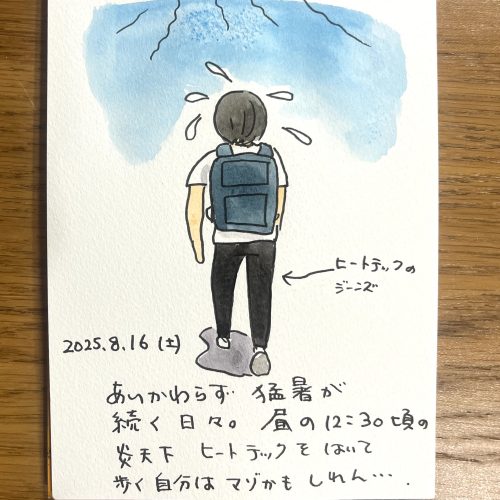 ヒートテックの
ジーンズ
2025.8.16 (土)
あいかわらず 猛暑が
続く日々。昼の12:30頃の
炎天下 ヒートテックをはいて
歩く自分は マゾかもしれん….